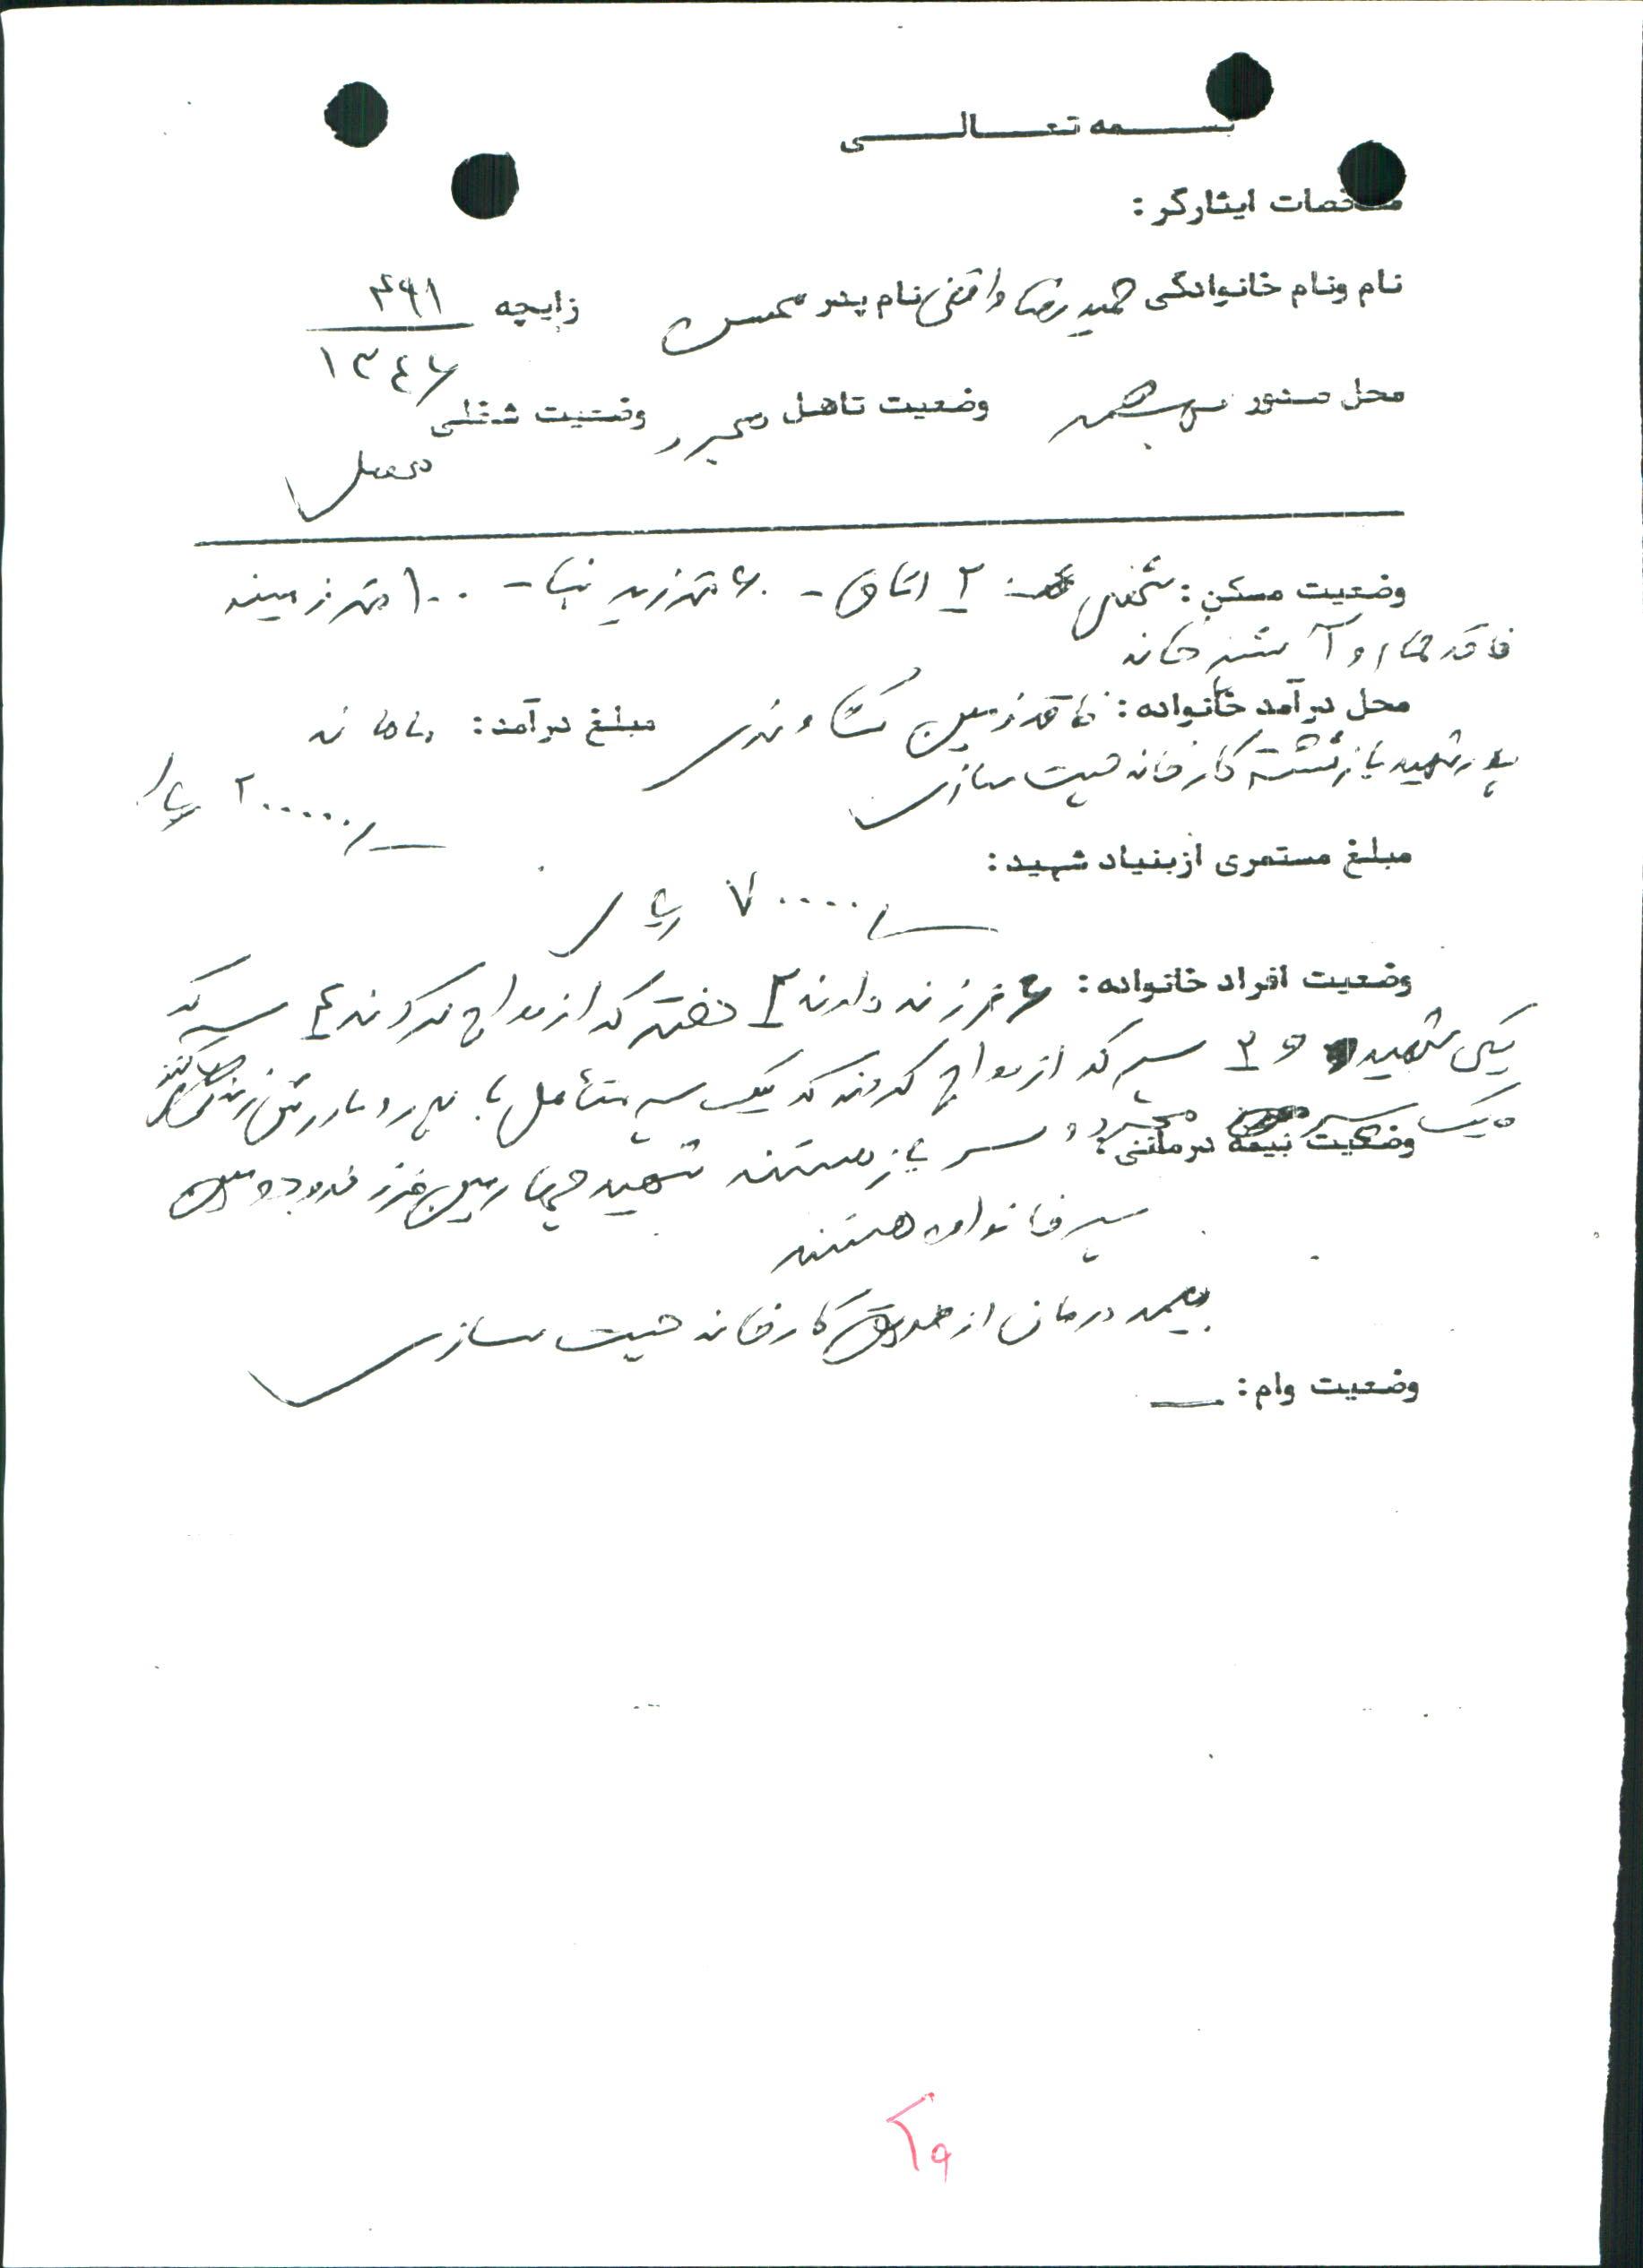 بسمه تعالی
مشخصات ایثارگر :
نام ونام خانوادگی حمیدرضا واقفی نام پدر محسن زایچه ۴۹۱
۱۳۴۶
محل صدور بهشهر وضعیت تاهل مجرد وضعیت شغلی
محصل
وضعیت مسکن : شخصی ۲ اتاق - ۶۰ متر زیر بنا - ۱۰۰ متر زمینه
فاقد حمام و آشپزخانه
محل درآمد خانواده : فاقد زمین کشاورزی مبلغ درآمد : ماهانه
پدر شهید بازنشسته کارخانه چیت سازی
۲۰۰۰۰۰/ ریال
مبلغ مستمری ازبنیاد شهید :
۷۰۰۰۰/ ریال
وضعیت افراد خانواده : ۶ فرزند دارند ۲ دختر که ازدواج کردند ۴ پسر که
یکی شهید و ۲ پسر که ازدواج کردند که یک پسر متأهل با پدر و مادرش زندگی میکند
و یک پسر مجرد و سرباز هستند شهید چهارمین فرزند و دومین
وضعیت بیمه درمانی :
پسر خانواده هستند
بیمه درمان از طریق کارخانه چیت سازی
وضعیت وام : ـــ
۲۹